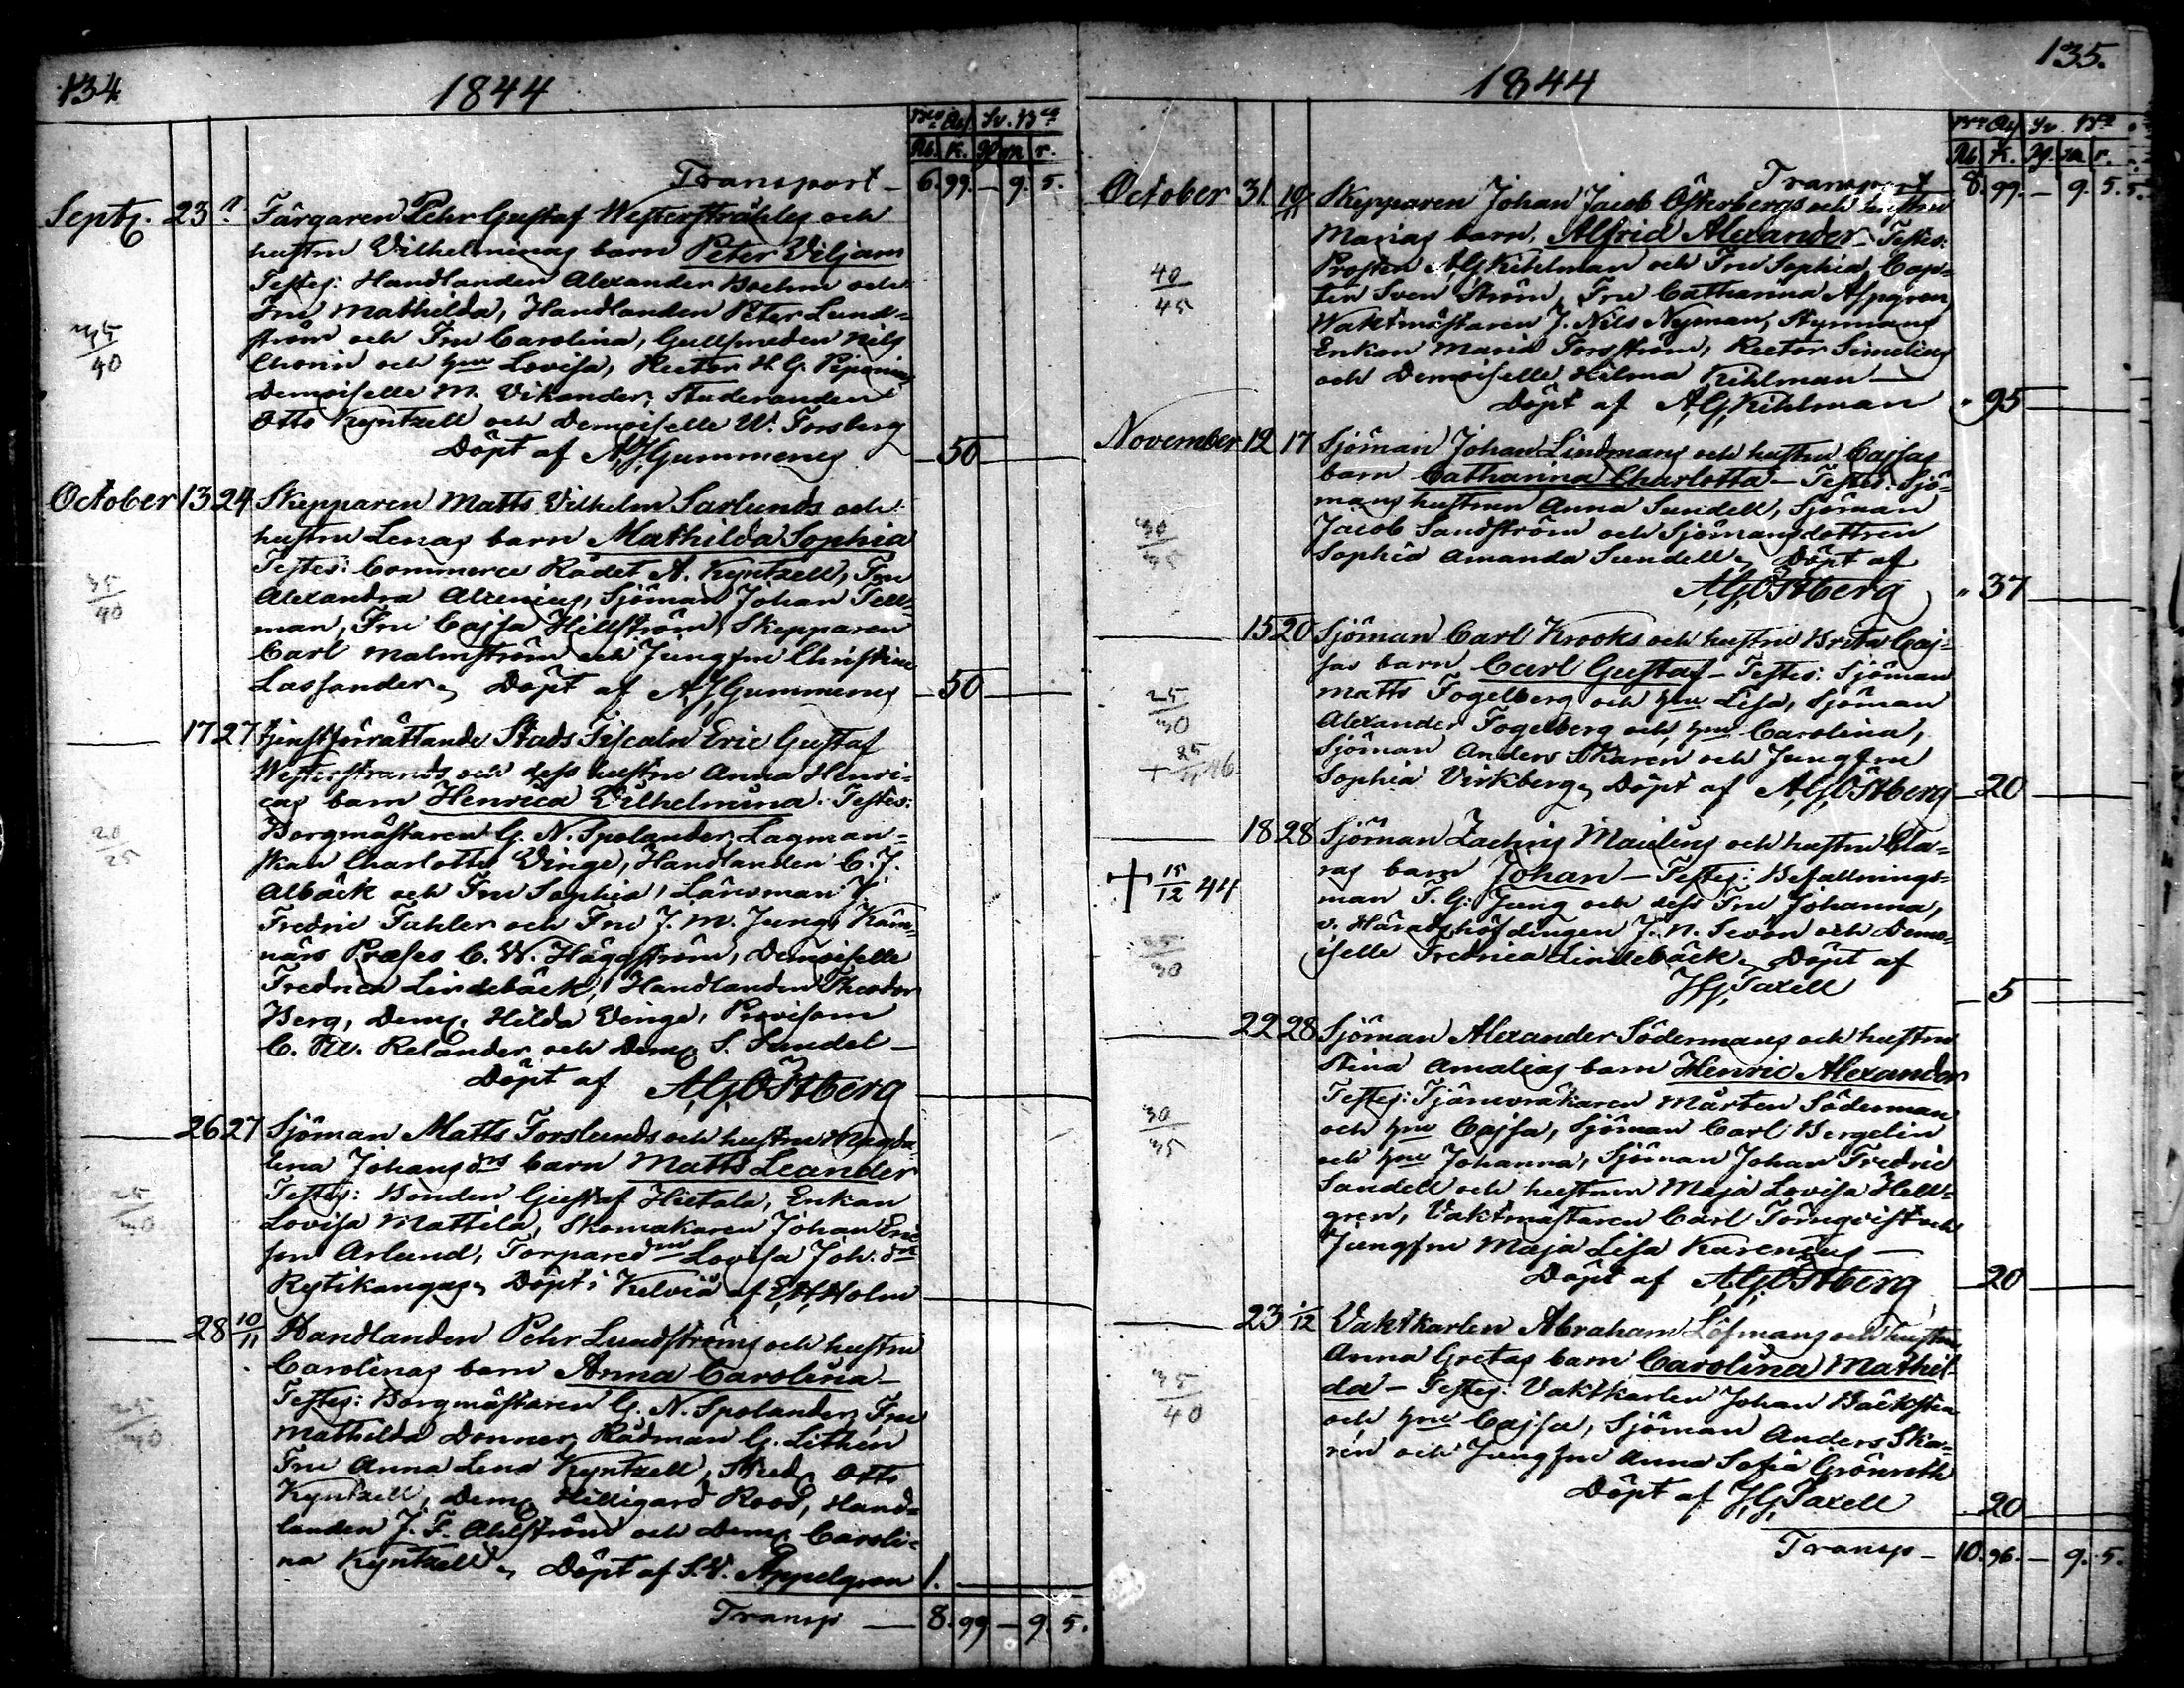 134
1844
Rb. K.
Transport — 6. 99. — 9. 5.
Septbr. 23 Färgaren Pehr Gustaf Westerstråhles och
hustru Vilhelminas barn Peter Viljam
Testes: Handlanden Alexander Boehm och
Fru Mathilda, Handlanden Peter Lund=
35/40
ström och Fru Carolina, Gullsmeden Nils
och hru Lovisa, Rector H. G.
Demoiselle M. Vikander, Studeranden
Otto Kyntzell och Demoiselle W. Forsberg
Döpt af A. J. Gummerus — 50
October 13 24 Skepparen Matts Vilhelm Sarlunds och
hustru Lenas barn Mathilda Sophia
Testes: Commerce Rådet A. Kyntzell, Fru
35/40
Alexandra Alcenius, Sjöman Johan Tell=
man, Fru Cajsa Hillström, Skepparen
Carl Malmström och Jungfru Christina
Lassander. Döpt af A. J. Gummerus — 50
17 27 tjenstförrättande Stads Fiscaln Eric Gustaf
Westerstrands och dess hustru Anna Henri=
cas barn Henrica Vilhelmina. Testes:
Borgmästaren G. N. Spolander, Lagman=
20/25
skan Charlotta Vinge, Handlanden C. J.
Albäck och Fru Sophia, Länsman J.
Fredric Fahler och Fru J. M. Jung, Käm=
närs Præses C. W. Häggström, Demoiselle
Fredrica Lindebäck, Handlanden Theodor
Berg, Dem. Hilda Vinge, Provisorn
C. W. Relander och Dem. S. Sundel —
Döpt af A. G. Östberg
26 27 Sjöman Matts Forslunds och hustru Magda=
lena Johansdrs barn Matts Leander
Testes: Bonden Gustaf Hietala, Enkan
Lovisa Mattila, Skomakaren Johan Eric
son Arlund, Torparedrn Lovisa Joh. dr
Rytikangas. Döpt i Kelviå af E. H. Holm
28 10/11 Handlanden Pehr Lundströms och hustru
Carolinas barn Anna Carolina —
Testes: Borgmästaren G. N. Spolander, Fru
Mathilda Donner, Rådman G. Lithén
Fru Anna Lena Kyntzell, Stud. Otto
Kyntzell, Dem. Hilligard Roos, Hand=
landen J. F. Ahlström och Dem. Caroli=
na Kyntzell. Döpt af S. V. Appelgren 1.
Transp — 8. 99 — 9. 5.
135.
1844
Rb. K.
Transport 8. 99. — 9. 5.
October 31 10/11 Skepparen Johan Jacob Österbergs och hustru
Marias barn, Alfrid Alexander — Testes:
40/45
Prosten A. G. Kihlman och Fru Sophia, Cap=
ten Sven Ström, Fru Catharina Aspegren,
Waktmästaren J. Nils Nyman, Styrmans
Enkan Maria Forsström, Rector Simelius
och Demoiselle Hilma Kihlman —
Döpt af A. G. Kihlman " 95
November 12 17 Sjöman Johan Lindmans och hustru Cajsas
barn Catharina Charlotta — Testes: Sjö=
mans hustrun Anna Sundell, Sjöman
Jacob Sandström och Sjömansdottren
Sophia Amanda Sundell. Döpt af
A. G. Östberg " 37
15 20 Sjöman Carl Krooks och hustru Brita Caj=
sas barn Carl Gustaf — Testes: Sjöman
25/30
Matts Fogelberg och hru Lisa, Sjöman
Alexander Fogelberg och hru Carolina,
Sjöman Anders Skaren och Jungfru
Sophia Virkberg. Döpt af A. G. Östberg — 20
18 28 Sjöman Zachris Mailens och hustru Cla=
ras barn Johan — Testes: Befallnings=
+ 15/12 44
man F. G. Jung och dess Fru Johanna,
v. Häradshöfdingen J. N. Sevon och Demo=
25/30
iselle Fredrica Lindebäck. Döpt af
J. G. Taxell — 5
22 28 Sjöman Alexander Södermans och hustru
Stina Amalias barn Henric Alexander
30/35
Testes: Tjäruvräkaren Mårten Söderman
och hru Cajsa, Sjöman Carl Bergelin
och hru Johanna, Sjöman Johan Fredric
Sandell och hustrun Maja Lovisa Hell=
gren, Vaktmästaren Carl Törnqvist och
Jungfru Maja Lisa Karenius —
Döpt af A. G. Östberg — 20
23 1/12 Vaktkarlen Abraham Löfmans och hustru
Anna Gretas barn Carolina Mathil=
35/40
da — Testes: Vaktkarlen Johan Bäckström
och hru Cajsa, Sjöman Anders Ska=
rén och Jungfru Anna Sofia Grönroth
Döpt af J. G. Taxell — 20
Transp — 10. 96. — 9. 5.